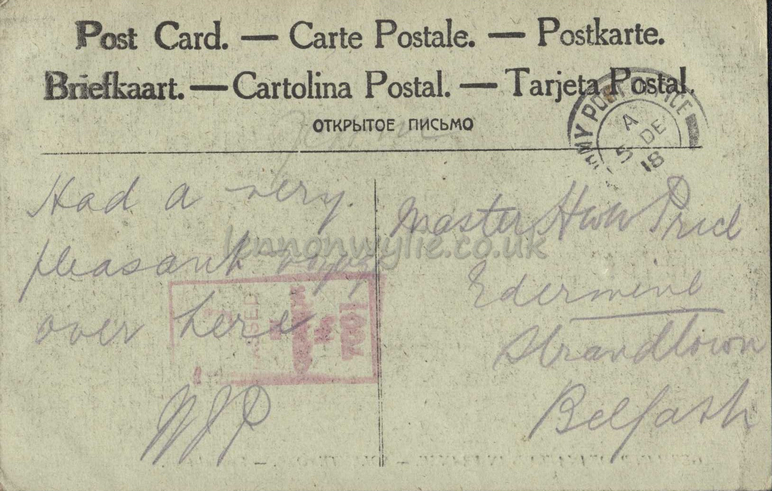 Post Card. — Carte Postale. — Postkarte.
Briefkaart. — Cartolina Postal. — Tarjeta Postal.
ОТКРЫТОЕ ПИСЬМО
ARMY POST OFFICE
A
5 DE
18
Had a very
pleasant
over here
WJP
Master
Edermine
Strandtown
Belfast
lennonwylie.co.uk
PASSED
No